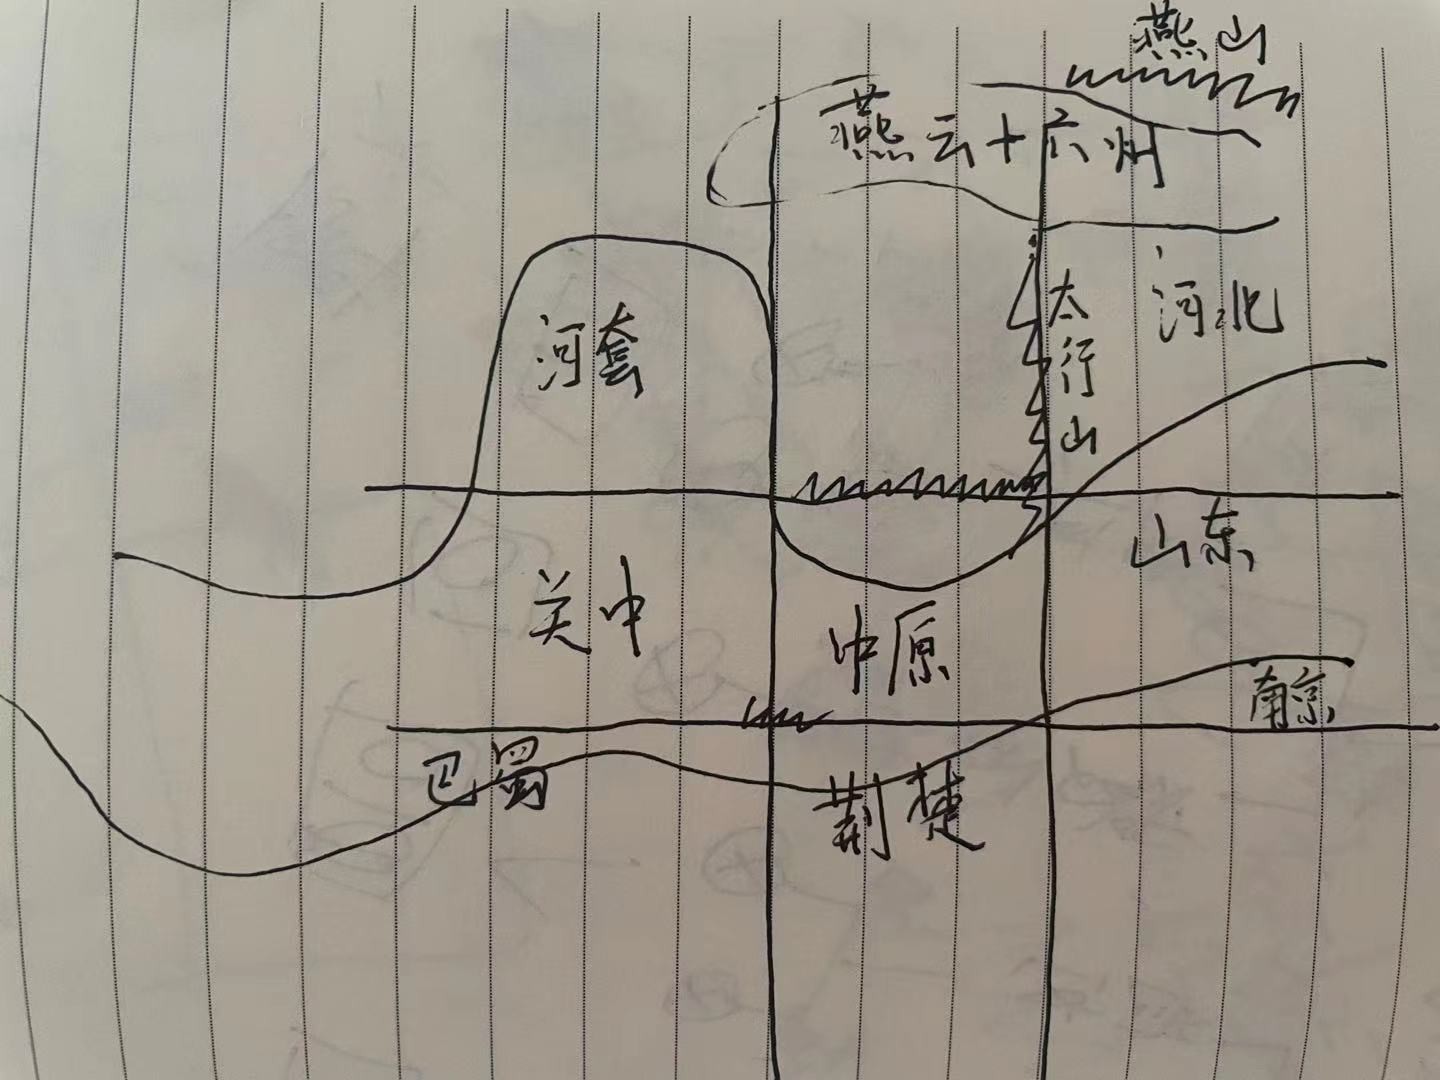 燕山
燕云十六州
河套
太行山
河北
山东
关中
中原
南京
巴蜀
荆楚